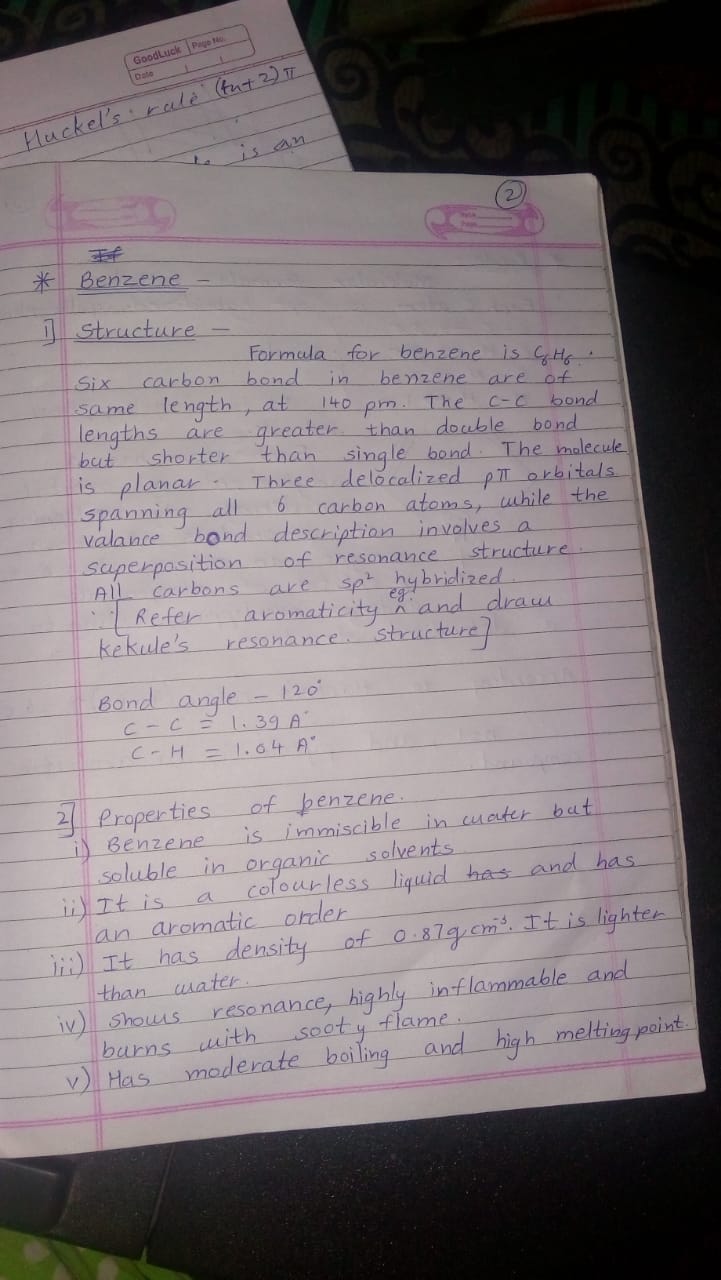 GoodLuck Page No.
Date
Huckel's rule (4n+2) π
is an
2
If
* Benzene -
1] Structure -
Formula for benzene is C6H6.
Six carbon bond in benzene are of
same length, at 140 pm. The C-C bond
lengths are greater than double bond
but shorter than single bond. The molecule
is planar. Three delocalized pπ orbitals
spanning all 6 carbon atoms, while the
valance bond description involves a
superposition of resonance structure.
All carbons are sp² hybridized.
[Refer aromaticity eg. ^ and draw
kekule's resonance. structure]
Bond angle - 120°
C-C = 1.39 A°
C-H = 1.04 A°
2] Properties of benzene.
i) Benzene is immiscible in water but
soluble in organic solvents
ii) It is a colourless liquid has and has
an aromatic order
iii) It has density of 0.87g cm⁻³. It is lighter
than water.
iv) Shows resonance, highly inflammable and
burns with sooty flame.
v) Has moderate boiling and high melting point.